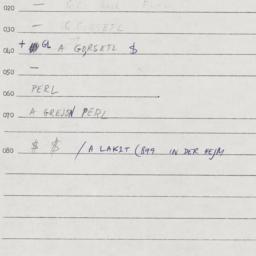 020 —
030 —
040 + GL A GORSETL $
050 —
060 PERL
070 A GREJON PERL
080 $ $ / A LAKZT (899 IN DER HEJM